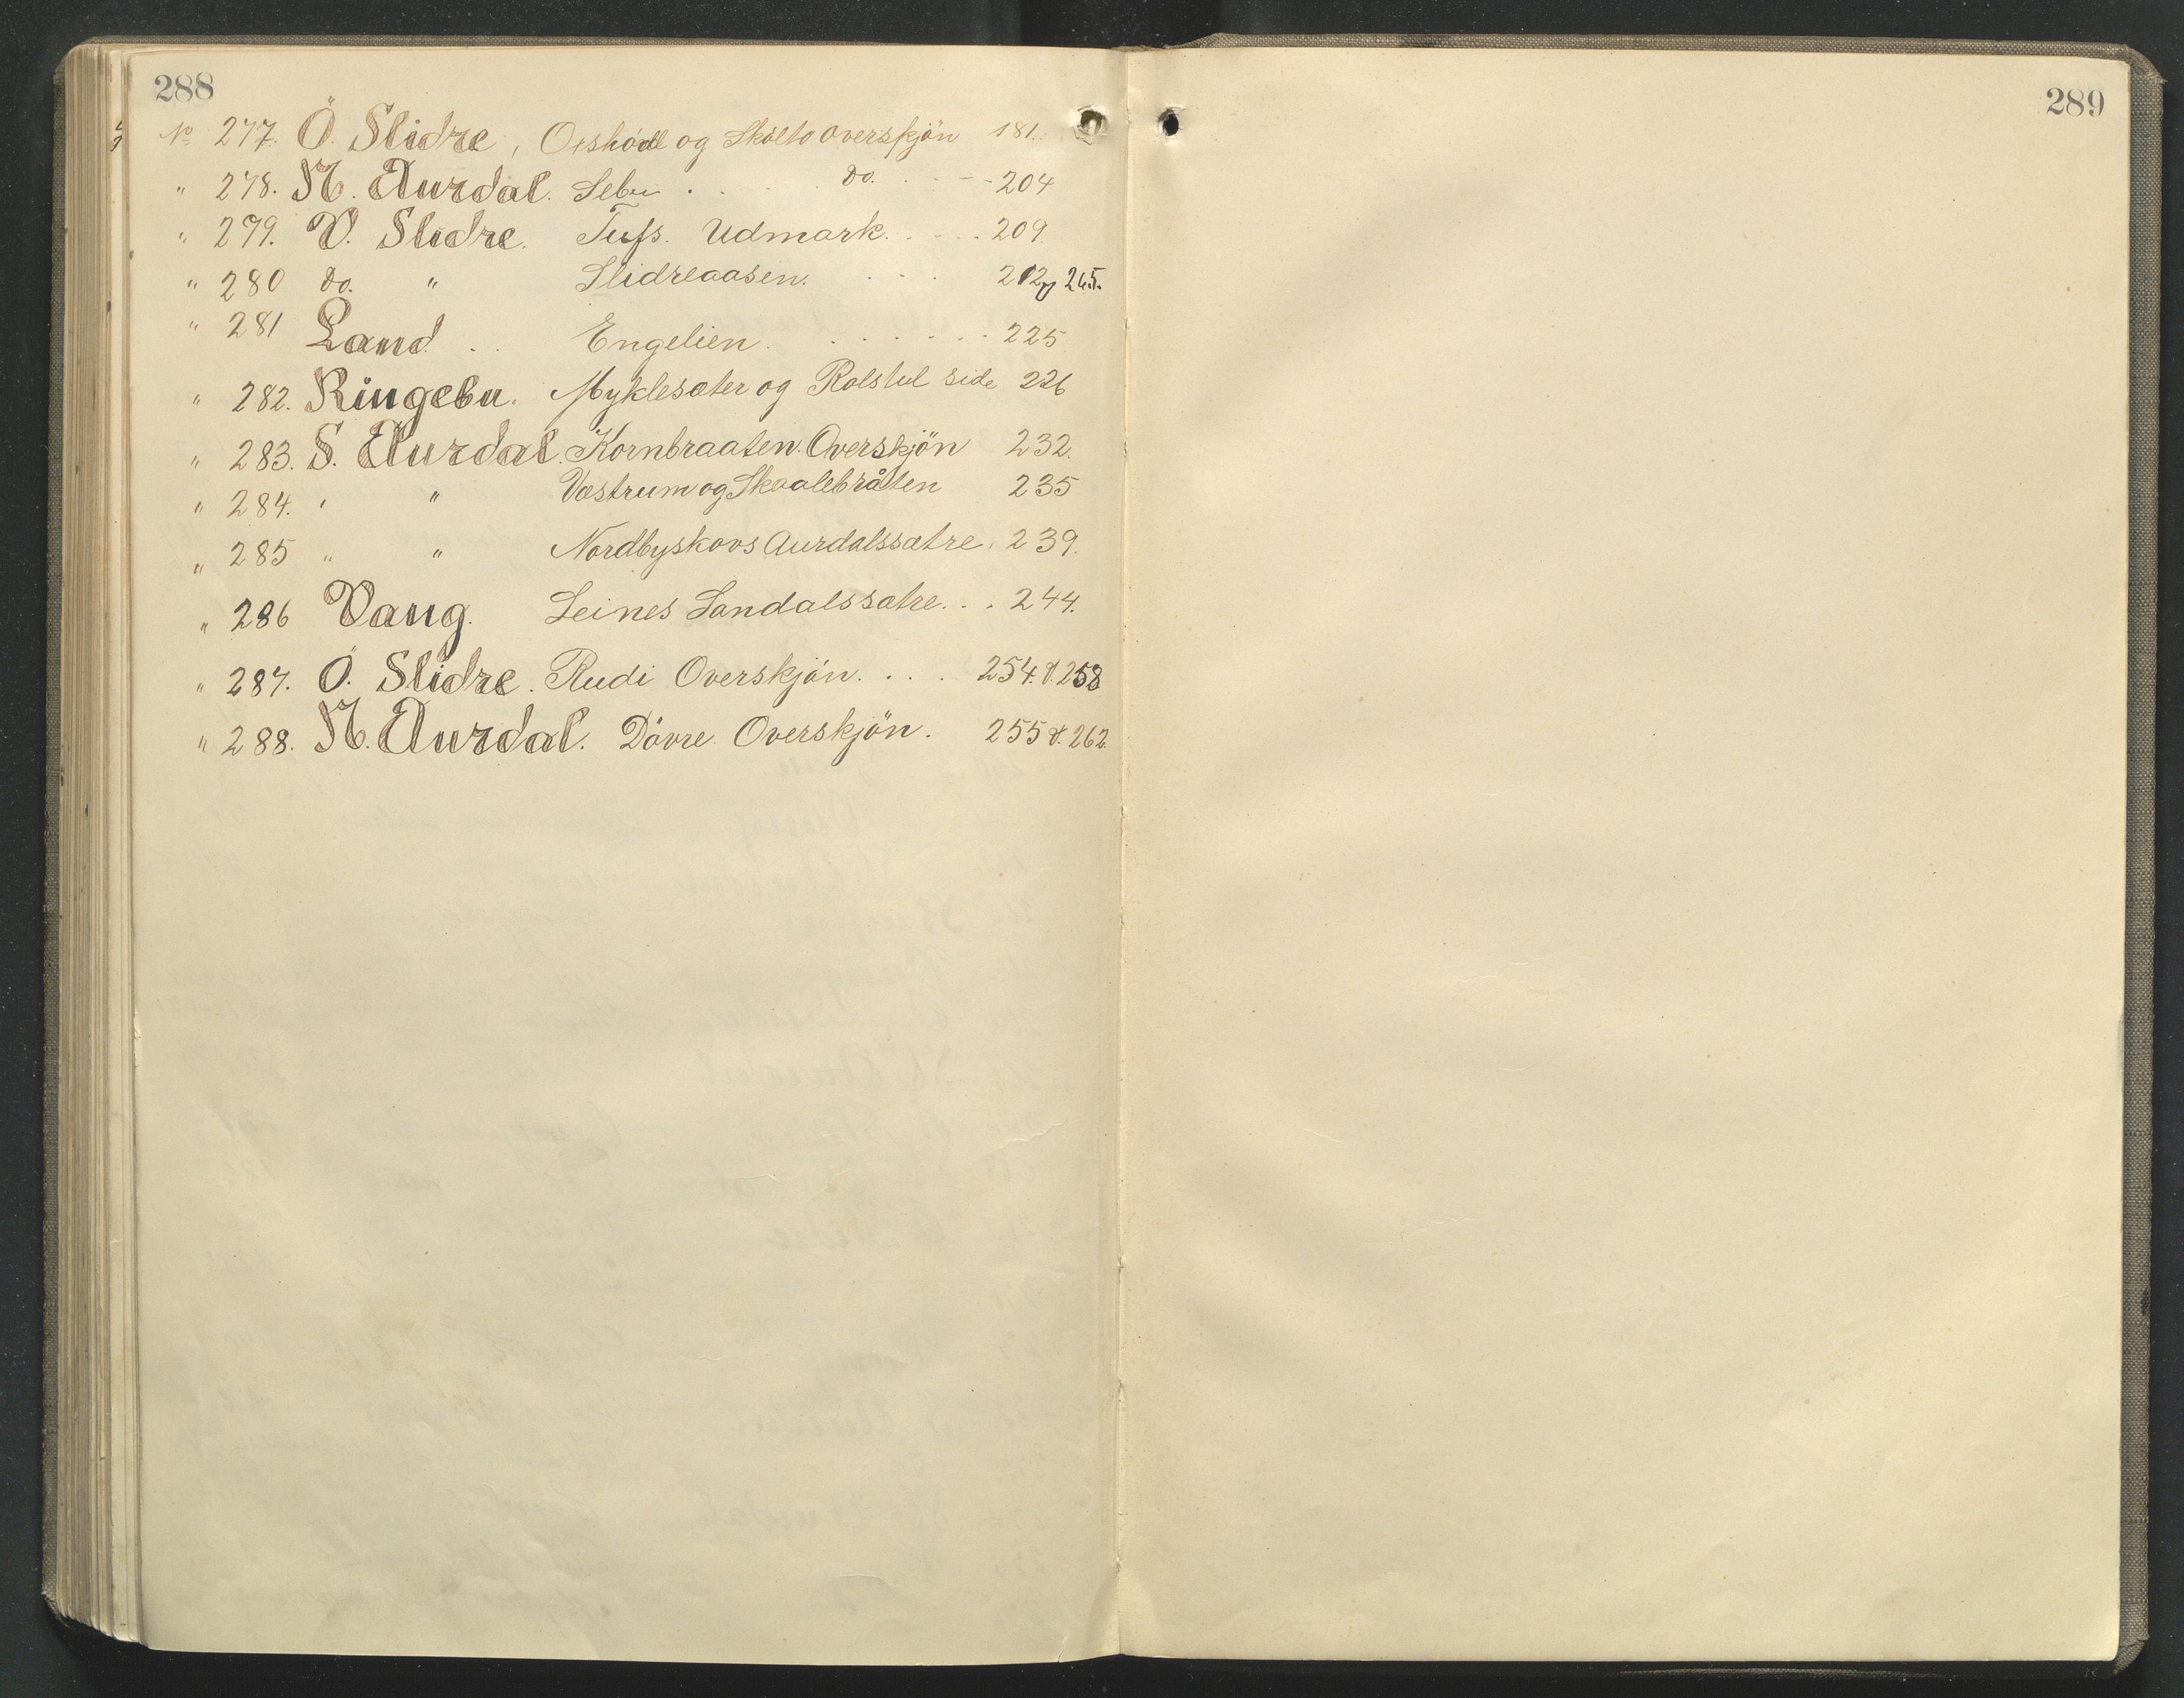 288
No 277. Ö. Slidre, og Skölto Overskjön 181.
" 278. N. Aurdal. Sebu . . . do. . . . 204
" 279. V. Slidre. Tufs. Udmark. . . . 209.
" 280 do. " Slidreaasen. . . . 212 og 265.
" 281 Land. . . Engelien. . . . . . . 225
" 282. Ringebu. Myklesæter og Rolstul side 226
" 283. S. Aurdal. Kornbraaten Overskjön 232.
" 284. " " Væstrum og Skaalebråten 235
" 285 " " Nordbyskovs Aurdalssætre. 239.
" 286 Vang. Leines Sandalssætre. . . 244.
" 287. Ö. Slidre. Rudi Overskjön. . . . 254. & 258
" 288. N. Aurdal. Dövre Overskjön. 255 & 262.
289